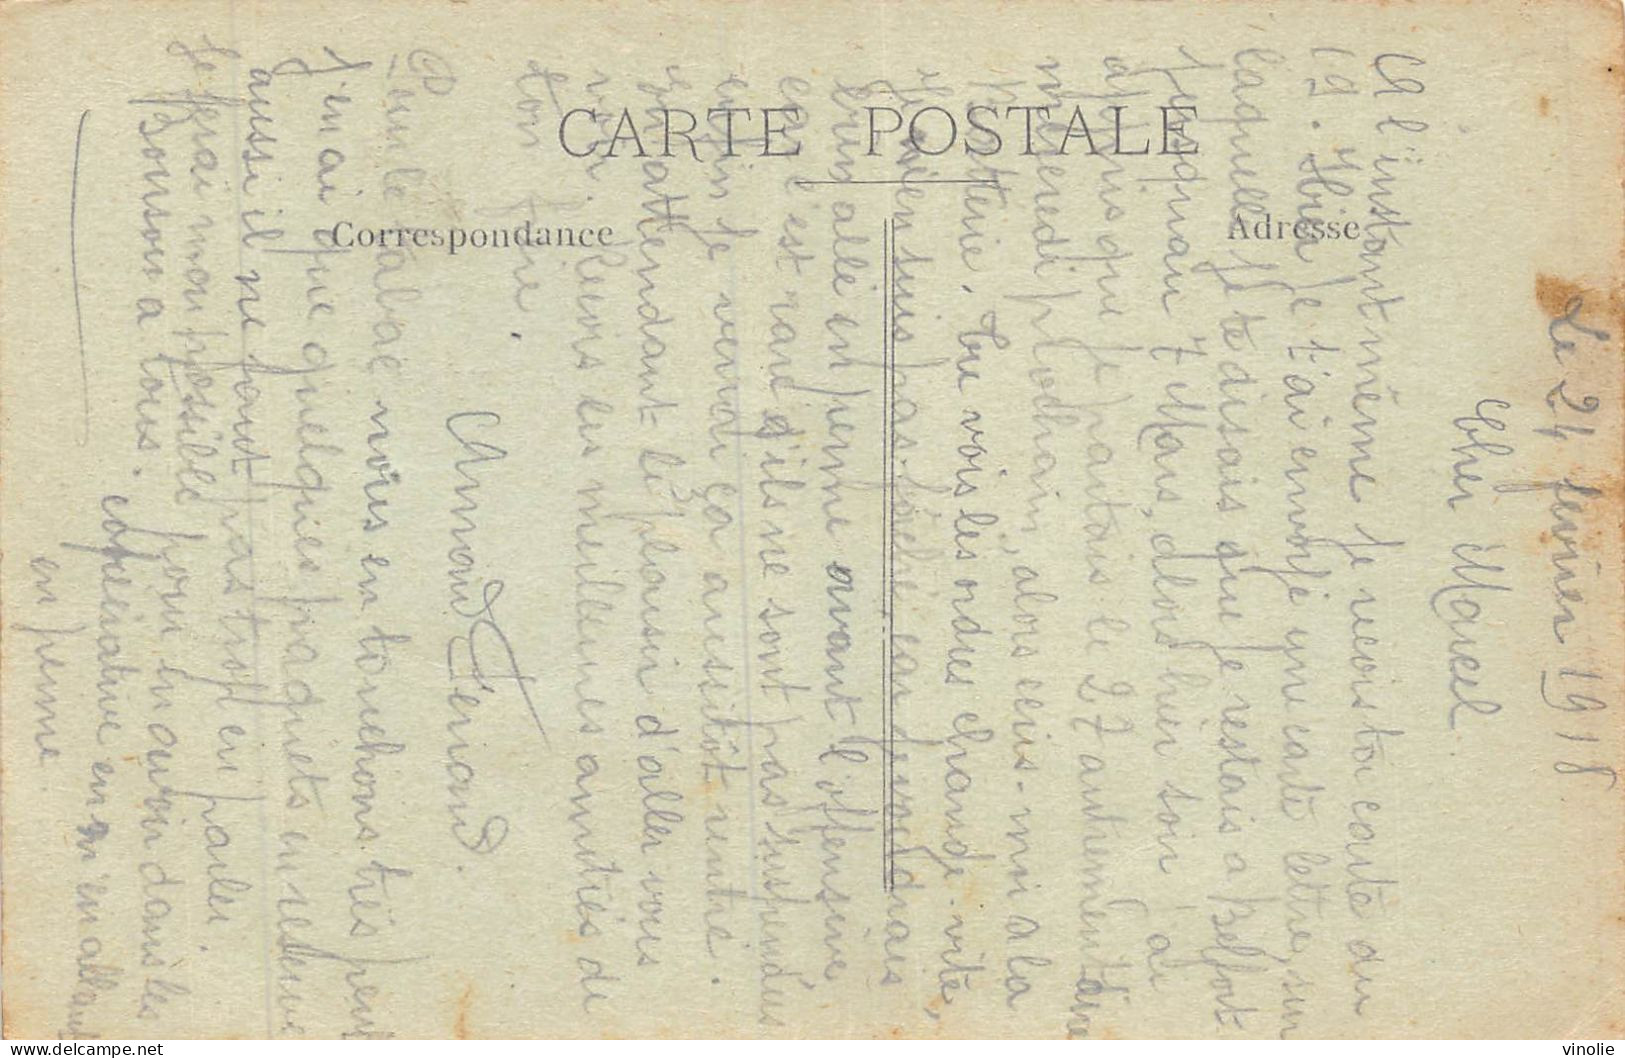 CARTE POSTALE
Correspondance
Adresse
Le 24 fevrier 1918
Cher Marcel.
A l'instant même je recois ta carte du
19. Hier je t'ai envoyé une carte lettre, sur
laquelle je te disais que je restais a Belfort
jusquau 7 Mars, alors hier soir j'ai
apris que je partais le 27 autrement dire
mercredi prodhain, alors ceis-mri a la
batterie. Tu vois les ordres change-vite,
j'en suis pas faché car je voudrais
être alé en perme avant l'offensive
car c'est rare s'ils ne sont pas suspendues
enfin je verrai ça aussitôt rentré.
En attendant le plaisir d'aller vous
voir. Recois les meilleures amitiés de
ton frère.
Armand Fernand.
Pour le tabac nous en touchons très peu
j'en ai que quelques paquets en reserve
aussi il ne faut pas trop en parler.
Je ferai mon possible pour en avoir dans les
coperative en m'en allant
en perme.
Bonsoir a tous.
vinolie